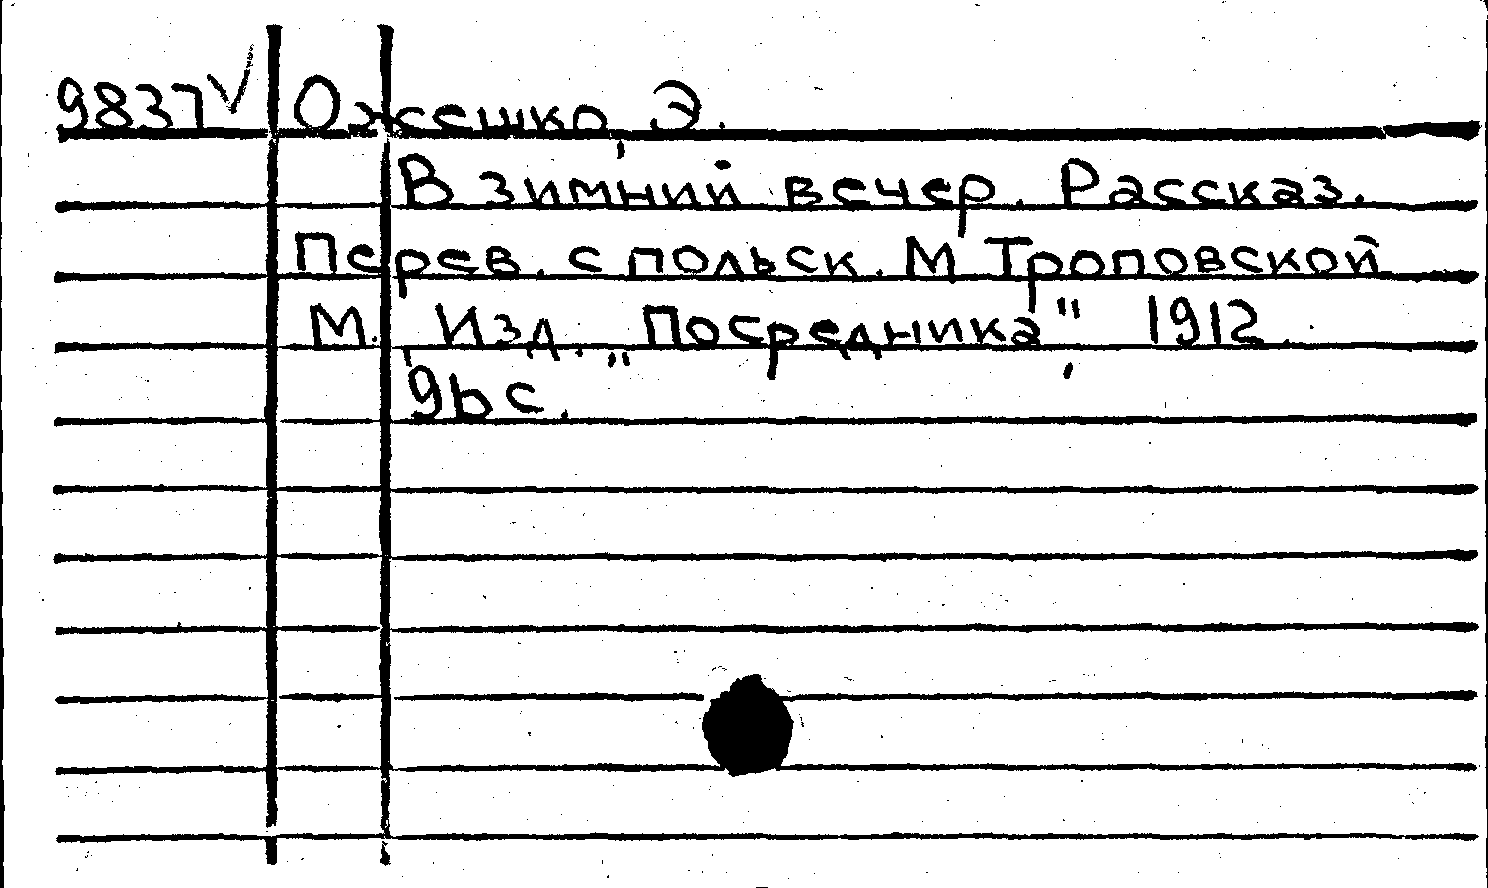 9837 Ожешко, Э.
В зимний вечер. Рассказ.
Перев. с польск. М Троповской
М. Изд. „Посредника" 1912.
96 с.